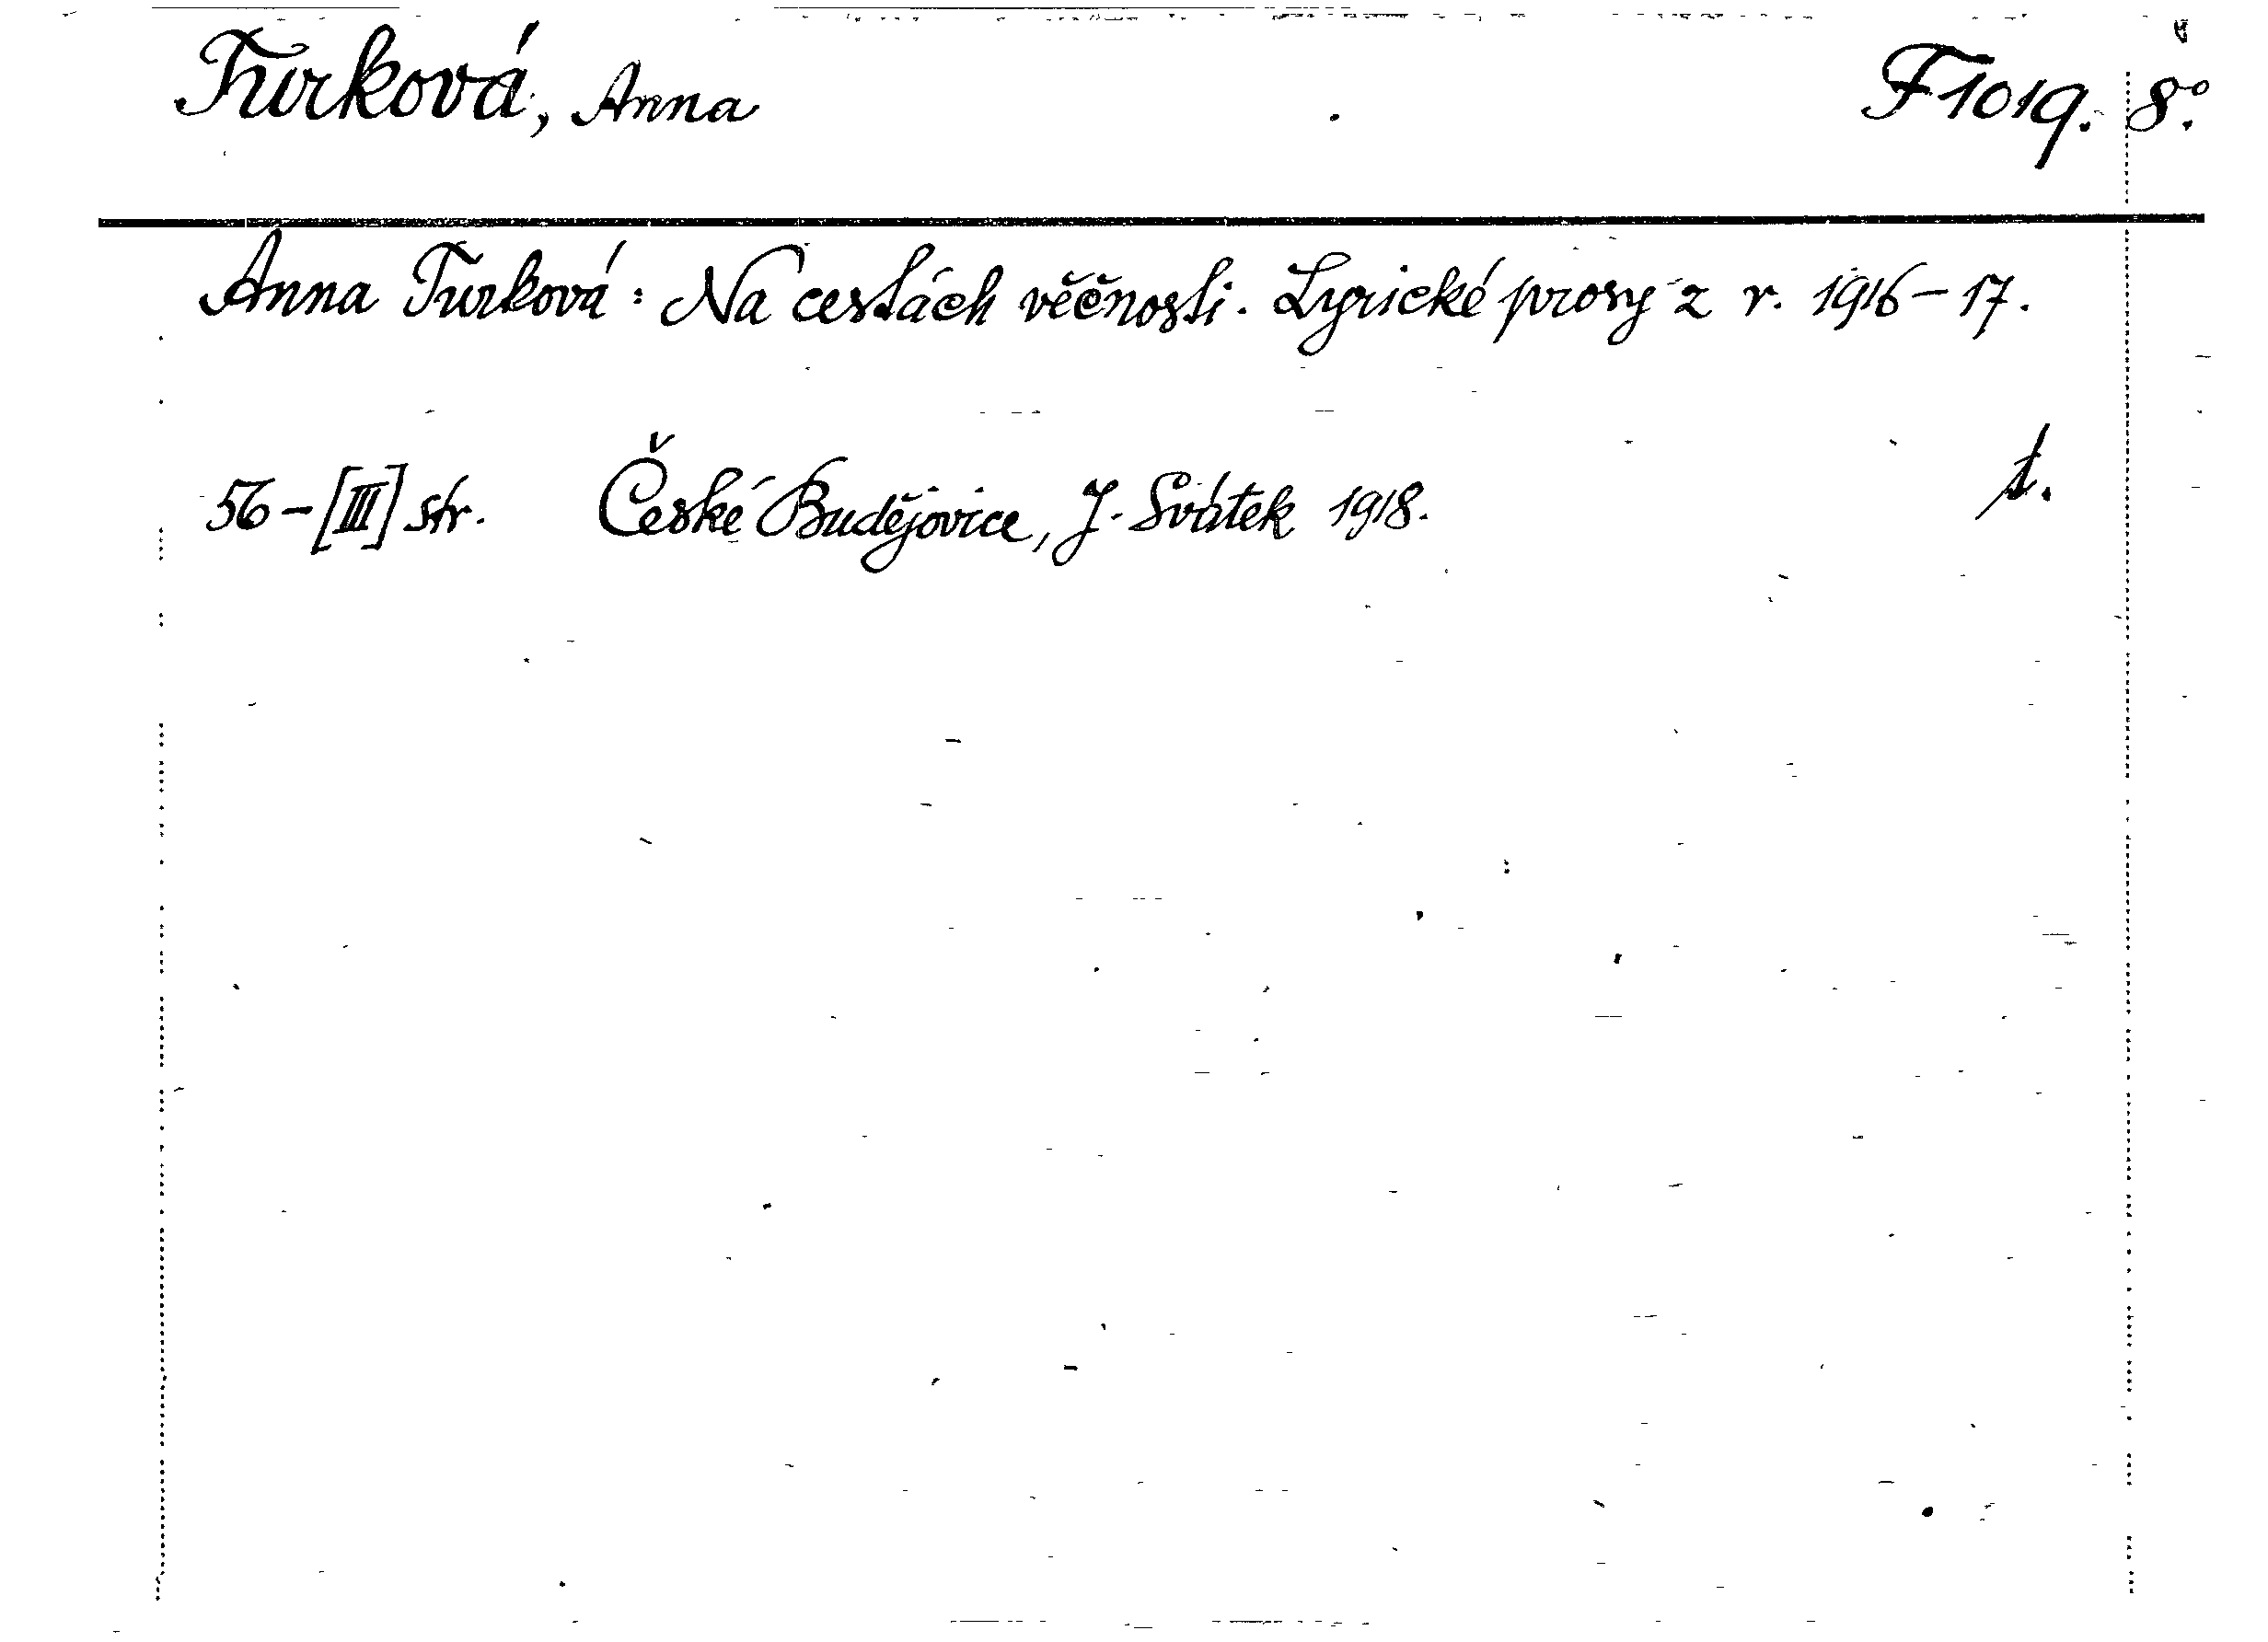 Turková, Anna F 1019. 8°.
Anna Turková: Na cestách věčnosti. Lyrické prosy z r. 1916–17.
56–[III] str. České Budějovice, J. Svátek 1918.